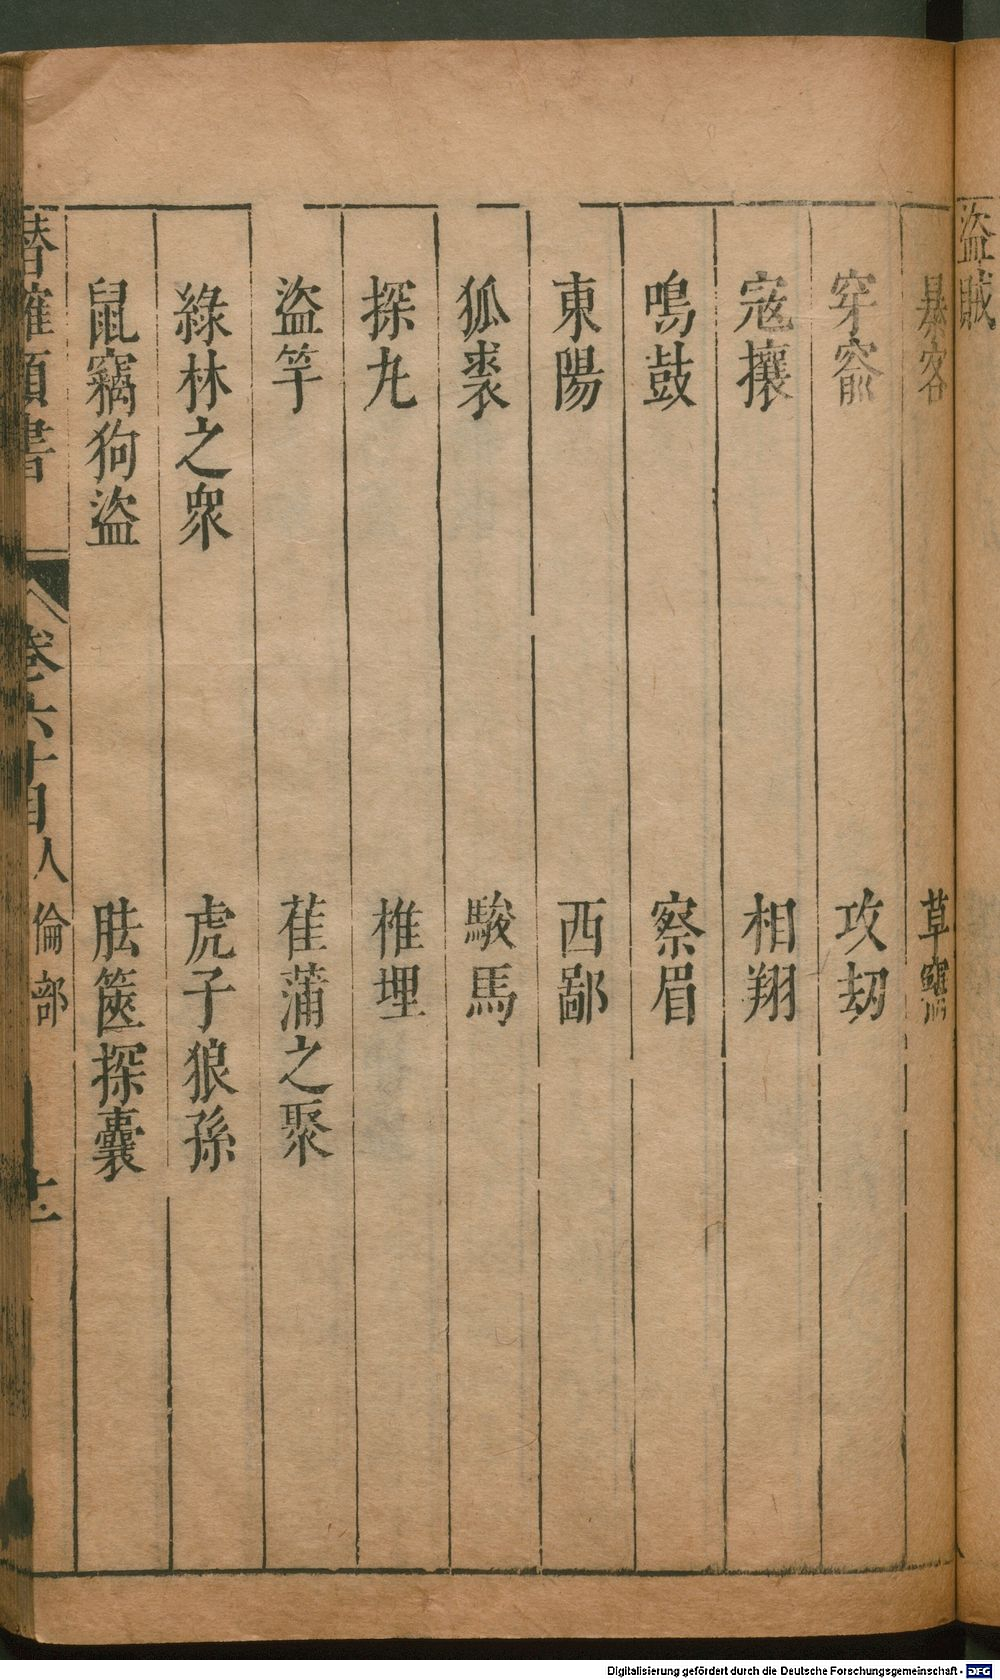 盜賊
暴客 草竊
穿窬 攻劫
寇攘 相翔
鳴鼓 察眉
東陽 西鄙
狐裘 駿馬
探丸 椎埋
盜竽 萑蒲之聚
綠林之衆 虎子狼孫
鼠竊狗盜 胠篋探囊
潛確類書 卷六十目 人倫部 十一
Digitalisierung gefördert durch die Deutsche Forschungsgemeinschaft - DFG